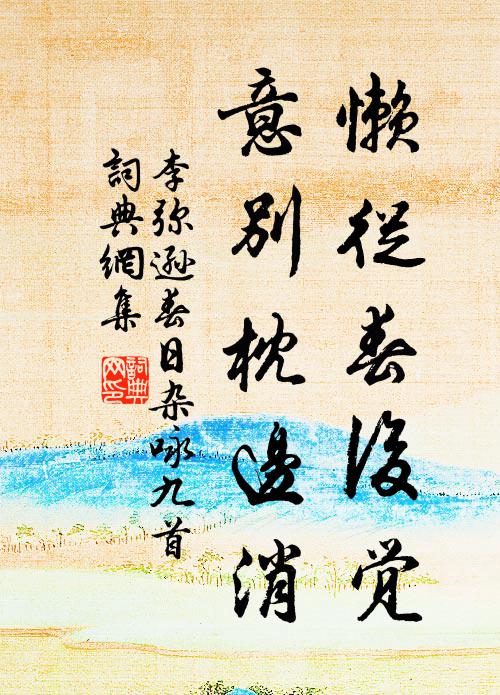 懒從春後觉
意别枕邊消
李弥遜春日杂咏九首
詞典網集
詞典
网印